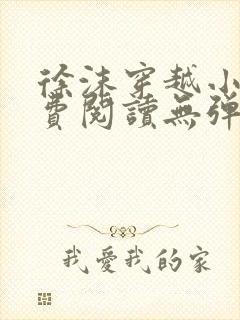 徐沫穿越小
費閱讀無彈
我愛我的家